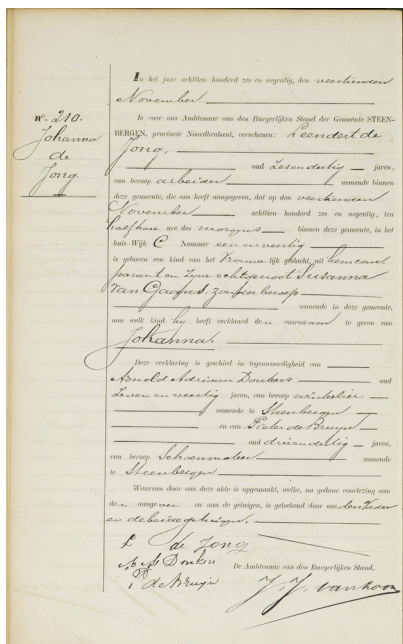 In het jaar achttien honderd zes en negentig, den veertienden
November
nº. 210.
Johanna
de
Jong
is voor ons Ambtenaar van den Burgerlijken Stand der Gemeente STEEN-
BERGEN, provincie Noordbrabant, verschenen: Leendert de
Jong,
oud zesendertig jaren,
van beroep arbeider wonende binnen
deze gemeente, die ons heeft aangegeven, dat op den veertienden
November achttien honderd zes en negentig, ten
half ure des morgens binnen deze gemeente, in het
huis Wijk C Nommer een en veertig
is geboren een kind van het Vrouwelijk geslacht, uit hem com-
parant en zyne echtgenoot Susanna
van zonder beroep
wonende in deze gemeente,
aan welk kind hy heeft verklaard den voornaam te geven van
Johanna.
Deze verklaring is geschied in tegenwoordigheid van
Arnold Adriaan Donkers oud
zeven en veertig jaren, van beroep winkelier
wonende te Steenbergen
en van Pieter de Bruyn
oud drieendertig jaren,
van beroep Schoenmaker wonende
te Steenbergen
Waarvan door ons deze akte is opgemaakt, welke, na gedane voorlezing aan
den aangever en aan de getuigen, is geteekend door ons den Vader
en de beide getuigen.
L de Jong
A A Donkers
De Ambtenaar van den Burgerlijken Stand,
P de Bruyn
J. J. van Loon